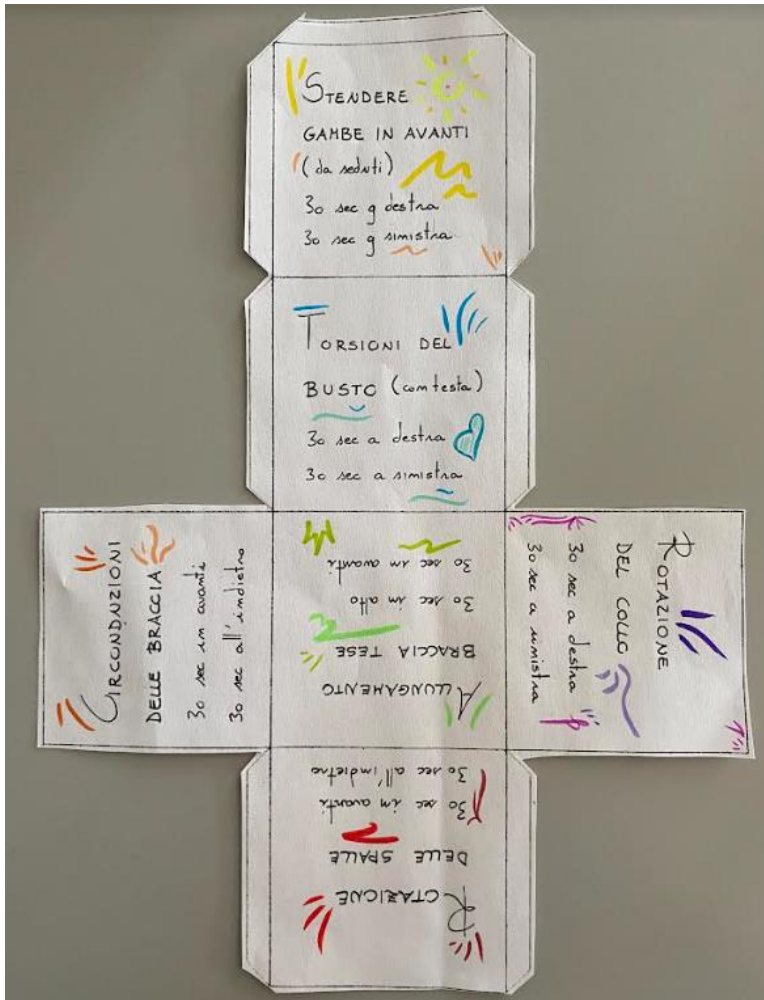 STENDERE
GAMBE IN AVANTI
(da seduti)
30 sec g destra
30 sec g sinistra
TORSIONI DEL
BUSTO (con testa)
30 sec a destra
30 sec a sinistra
CIRCONDNZIONI
DELLE BRACCIA
30 sec in avanti
30 sec all'indietro
ALLUNGAMENTO
BRACCIA TESE
30 sec in alto
30 sec in avanti
ROTAZIONE
DEL COLLO
30 sec a destra
30 sec a sinistra
ROTAZIONE
DELLE SPALLE
30 sec in avanti
30 sec all'indietro